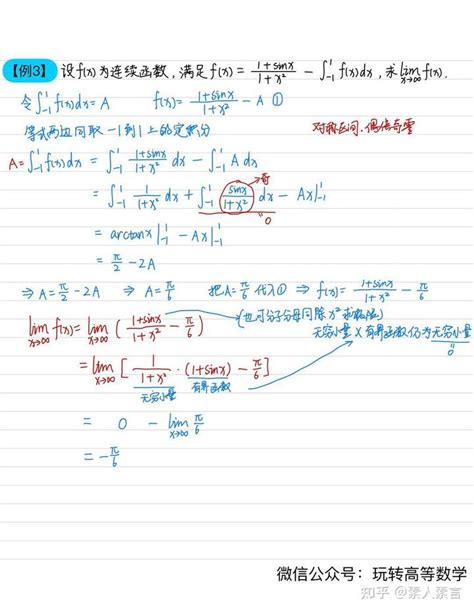 【例3】设f(x)为连续函数,满足f(x) = \frac{1+sinx}{1+x²} - ∫_{-1}^{1} f(x)dx,求\lim_{x→∞} f(x).
令∫_{-1}^{1} f(x)dx = A f(x) = \frac{1+sinx}{1+x²} - A ①
等式两边同取 -1到1上的定积分 对称区间,偶倍奇零
A = ∫_{-1}^{1} f(x)dx = ∫_{-1}^{1} \frac{1+sinx}{1+x²} dx - ∫_{-1}^{1} A dx
奇
= ∫_{-1}^{1} \frac{1}{1+x²} dx + ∫_{-1}^{1} \frac{sinx}{1+x²} dx - Ax|_{-1}^{1}
0
= arctanx|_{-1}^{1} - Ax|_{-1}^{1}
= \frac{π}{2} - 2A
⇒ A = \frac{π}{2} - 2A ⇒ A = \frac{π}{6} 把A = \frac{π}{6} 代入① ⇒ f(x) = \frac{1+sinx}{1+x²} - \frac{π}{6}
\lim_{x→∞} f(x) = \lim_{x→∞} ( \frac{1+sinx}{1+x²} - \frac{π}{6} ) (也可分子分母同除x²求极限)
无穷小量 × 有界函数仍为无穷小量
0
= \lim_{x→∞} [ \frac{1}{1+x²} · (1+sinx) - \frac{π}{6} ]
无穷小量 有界函数
= 0 - \lim_{x→∞} \frac{π}{6}
= -\frac{π}{6}
微信公众号:玩转高等数学
知乎 @素人素言